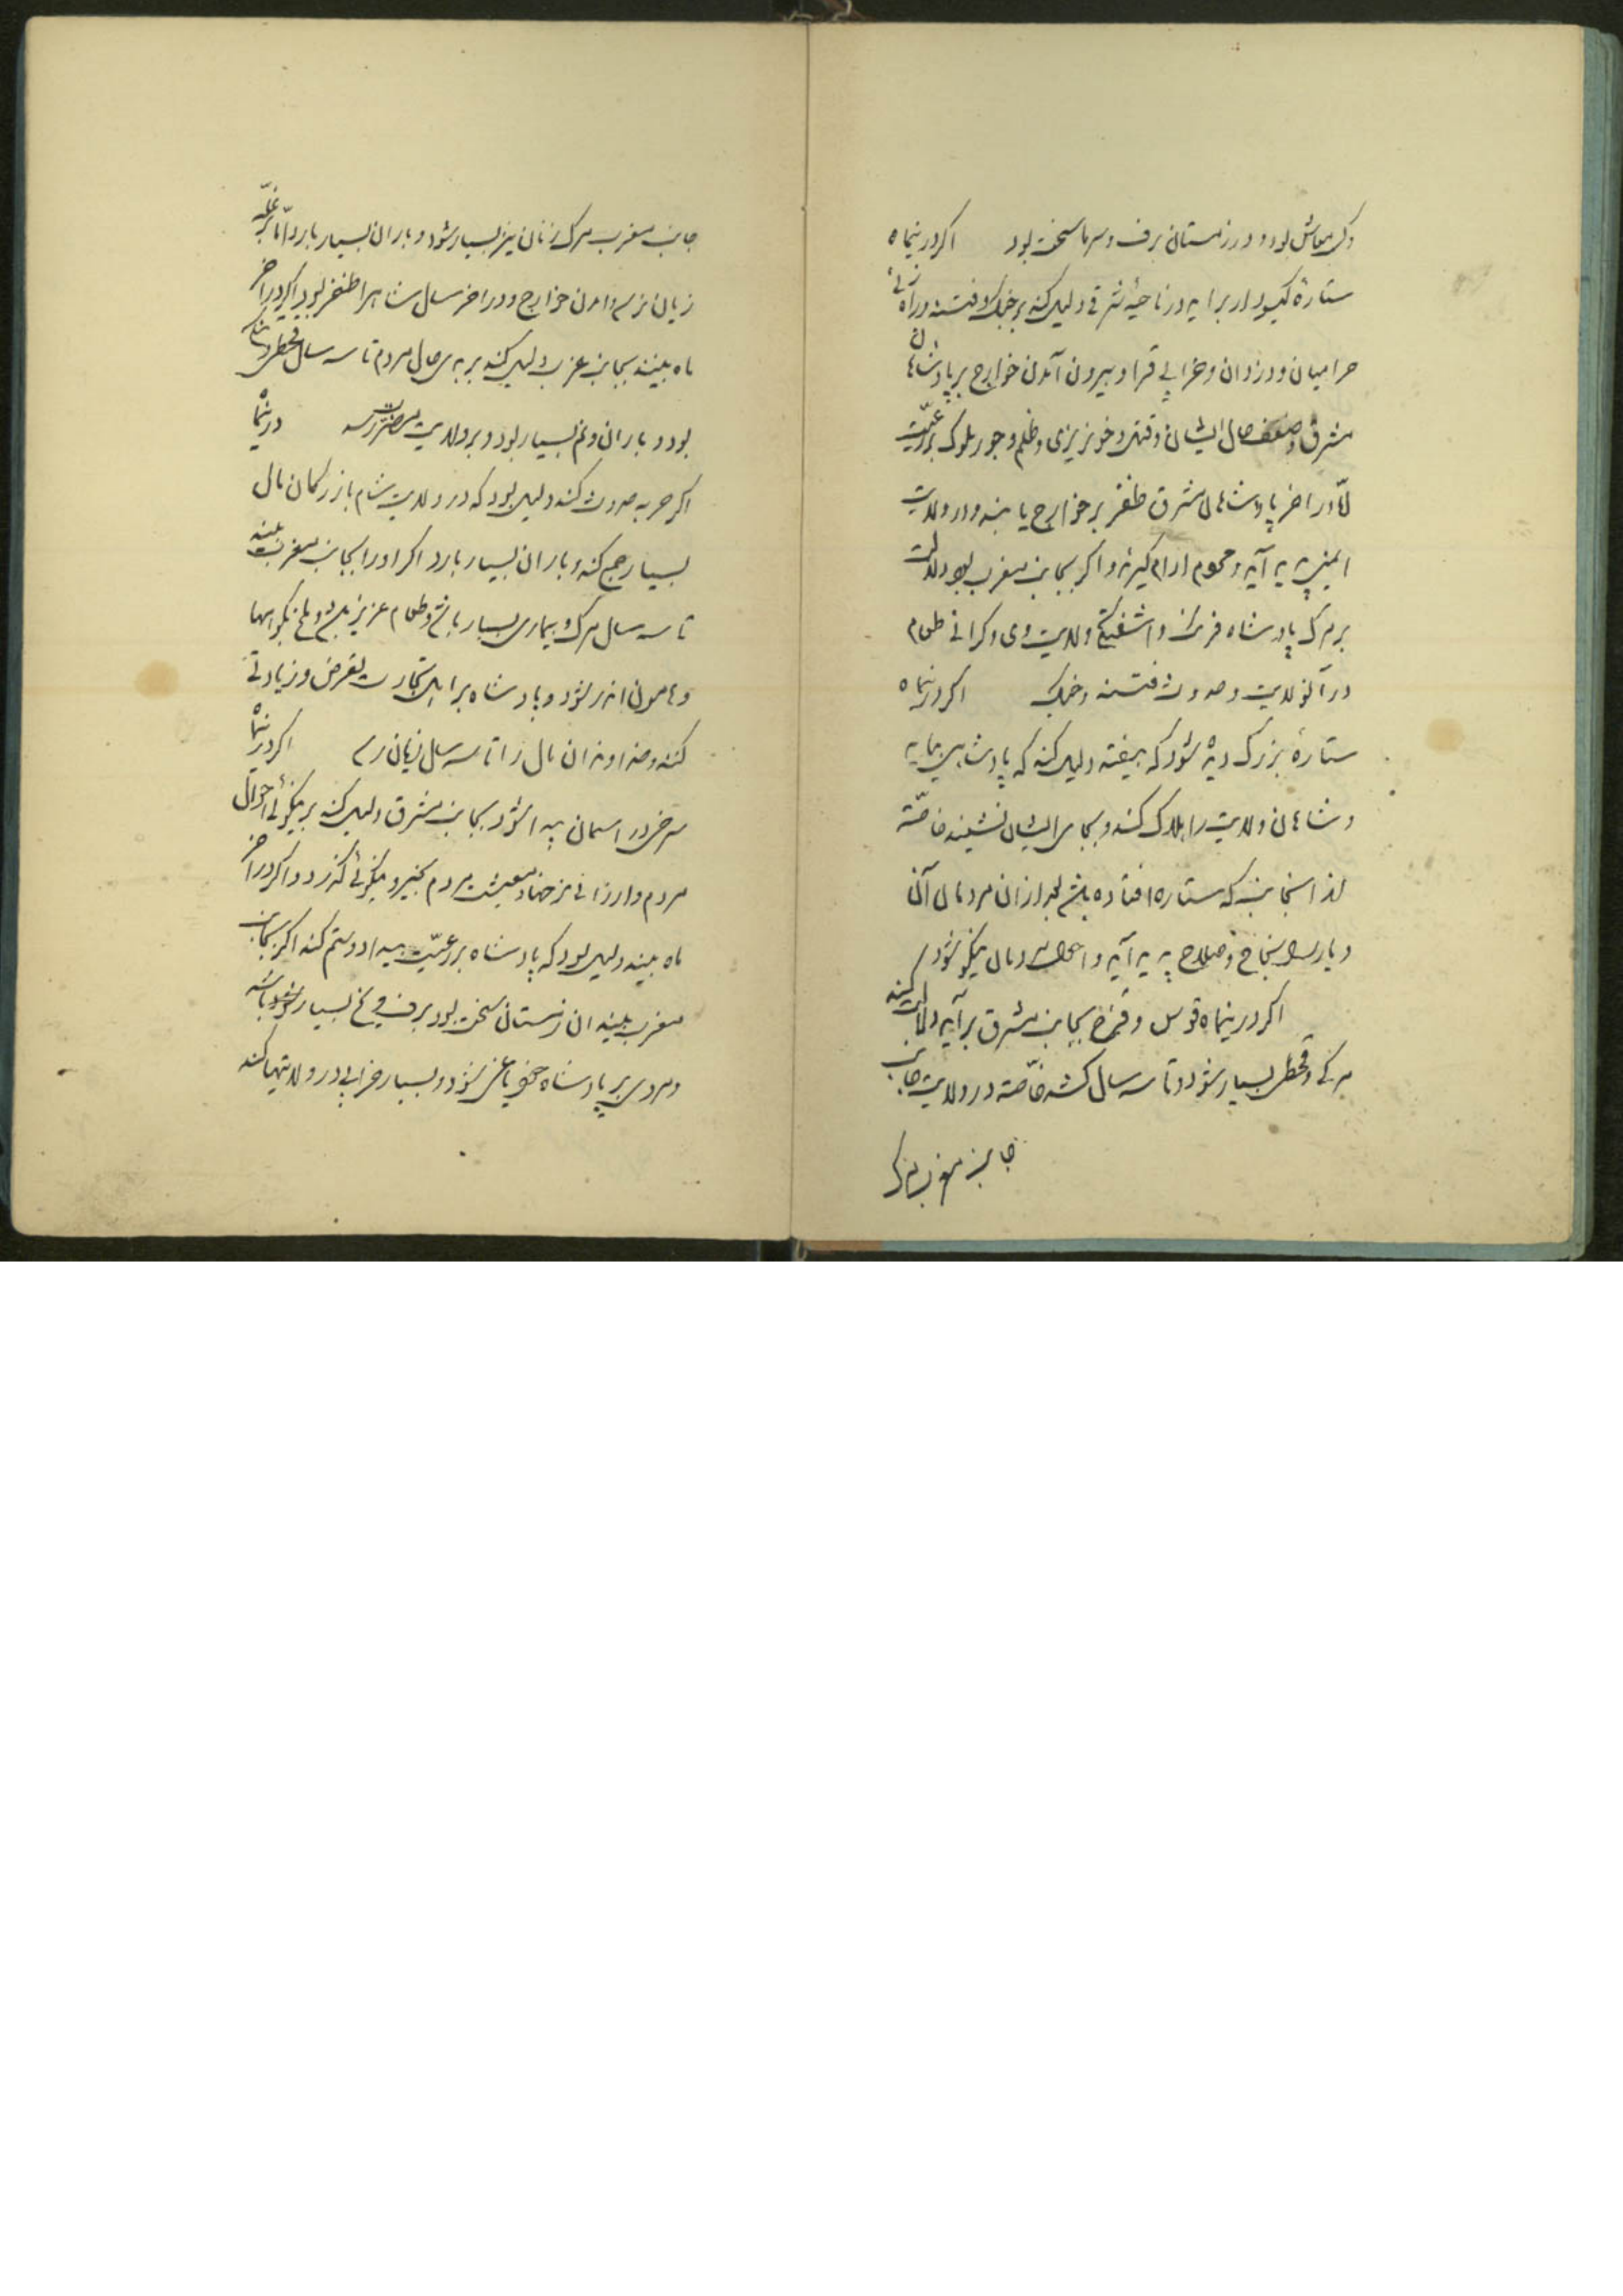 وکل معاش بود و در زمستان برف و سرما سخت بود اکر درینماه
ستارهٔ کیسودار براید در ناحیهٔ شرقی دلیل کند بر جنک و فتنه و راه زنی
حرامیان و دزدان و خرابی قرا و بیرون آمدن خوارج بر پادشاهان
مشرق و ضعف حال ایشان و فتنه و خونریزی و ظلم و جور ملوک بر رعیّت
امّا در اخر پادشاهان مشرق ظفر بر خوارج یابند و در ولایت
ایمنی پدید آید و عموم ارام کیرند و اکر بجانب مغرب بود دلالت
بر مرک پادشاه فرنک و اشفتکی ولایت وی و کرانی طعام
در آنولایت و حدوث فتنه و جنک اکر درینماه
ستارهٔ بزرک دیده شود که بیفتد دلیل کند که پادشاهی بیاید
و شاهان ولایت را هلاک کند و بجای ایشان نشیند خاصّه
از انجانب که ستاره افتاده باشد بعد ازان مردمان آن
دیار را نجاح و صلاح پدید آید و احوال مردمان نیکو شود
اکر درینماه قوس و قزح بجانب مشرق برآید دلالت کند
مرک و قحط بسیار شود و تا سه سال کشد خاصّه در ولایت جانب
جانب مغرب مرک
جانب مغرب مرک زنان نیز بسیار شود و باران بسیار بارد امّا بر غلّه
زیان نرسد و امدن خوارج و در اخر سال شاه را ظفر بود اکر در اخر
ماه بینند بجانب غرب دلیل کند بر بدی حال مردم تا سه سال قحط و تنکی
بود و باران و نم بسیار بود و بر ولایت مضرّت رسد درینماه
اکر حربه حدوث کند دلیل بود که در ولایت شام بازرکمان مال
بسیار جمع کند و باران بسیار بارد اکر او را بجانب مغرب بینند
تا سه سال مرک و بیماری بسیار باشد و طعام عزیز بود و ملخ بکوهها
و هامون اندر شود و پادشاه بر اهل تجارت تعرض و زیادتی
کند و خداوندان مال را تا سه سال زیان رسد اکر درینماه
سرخی در اسمان پیدا شود بجانب مشرق دلیل کند بر نیکوئی احوال
مردم و ارزانی نرخها و معیشت مردم بخیر و نیکوئی کذرد و اکر در اخر
ماه بینند دلیل بود که پادشاه بر رعیّت بیداد و ستم کند اکر بجانب
مغرب بینند ان زمستان سخت بود برف و یخ بسیار شود باشد
و مردی بر پادشاه خود یاغی شود و بسیار خرابی در ولایتها کند